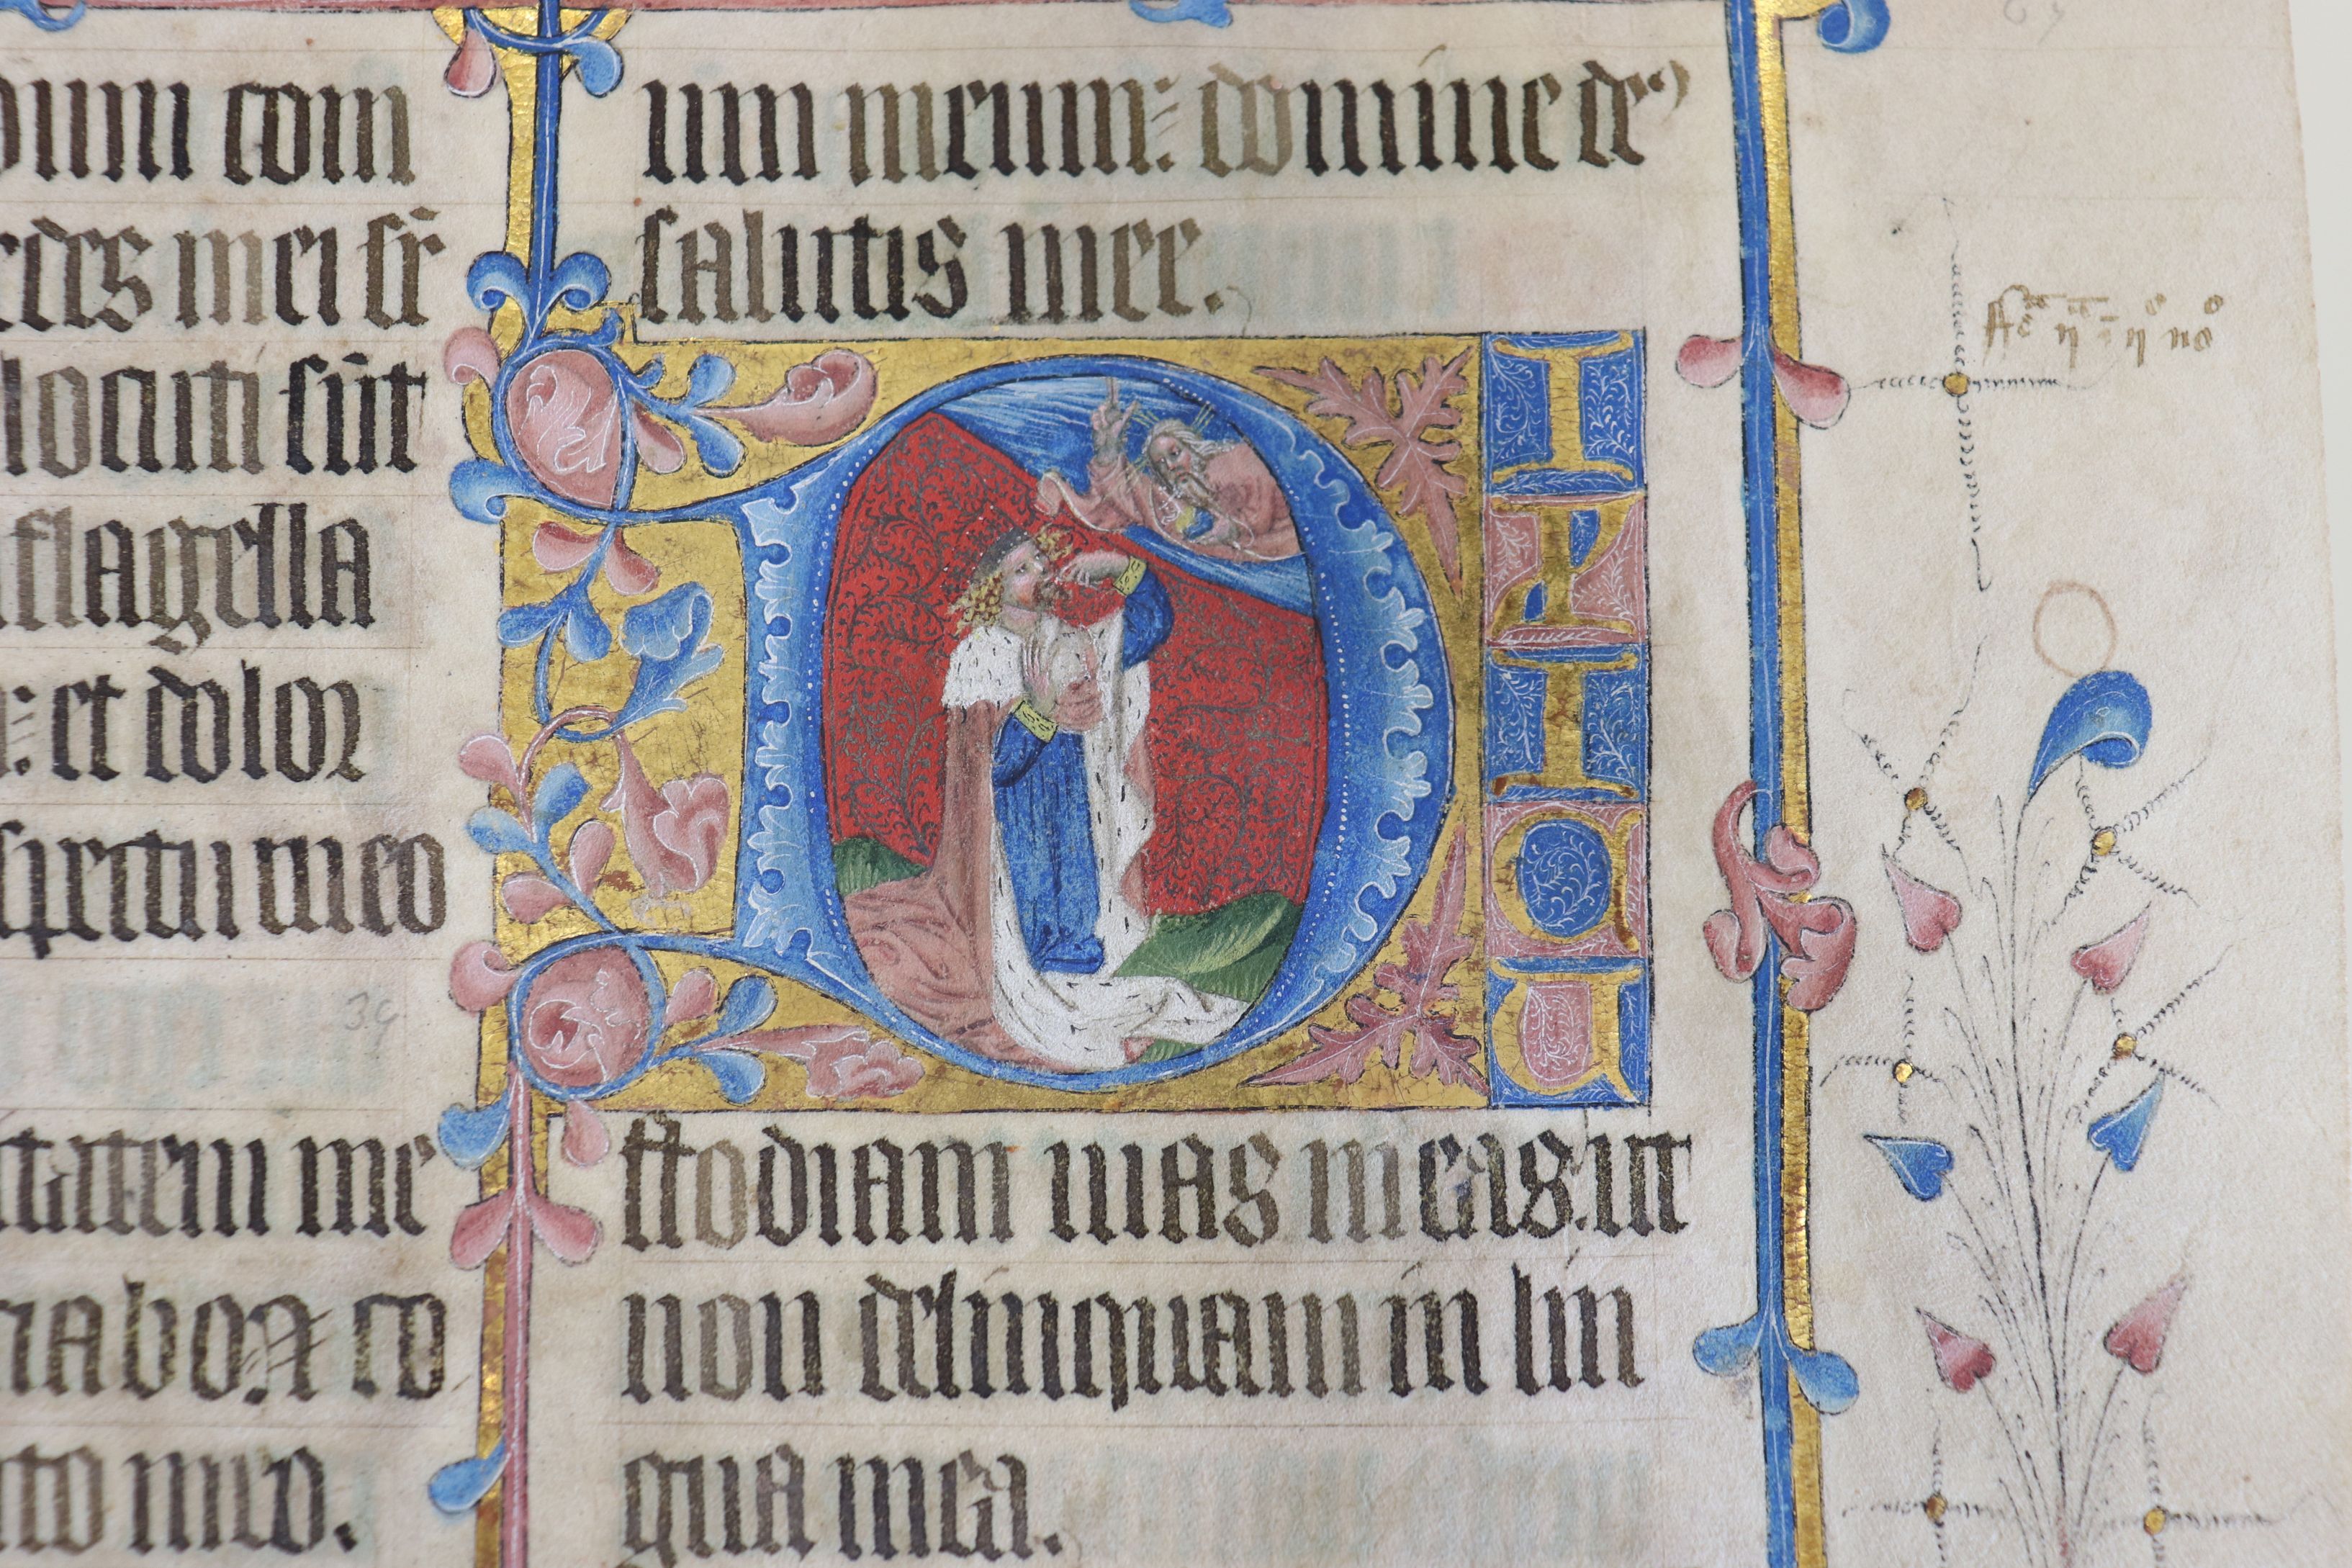 dium com
edes mei sr
locuti sūt
flagella
: et dolor
spectu meo
39
itatem me
ato meo.
um meum: domine deꝰ
salutis mee.
DIXI CU
stodiam uias meas. ut
non delinquam in lin
gua mea.